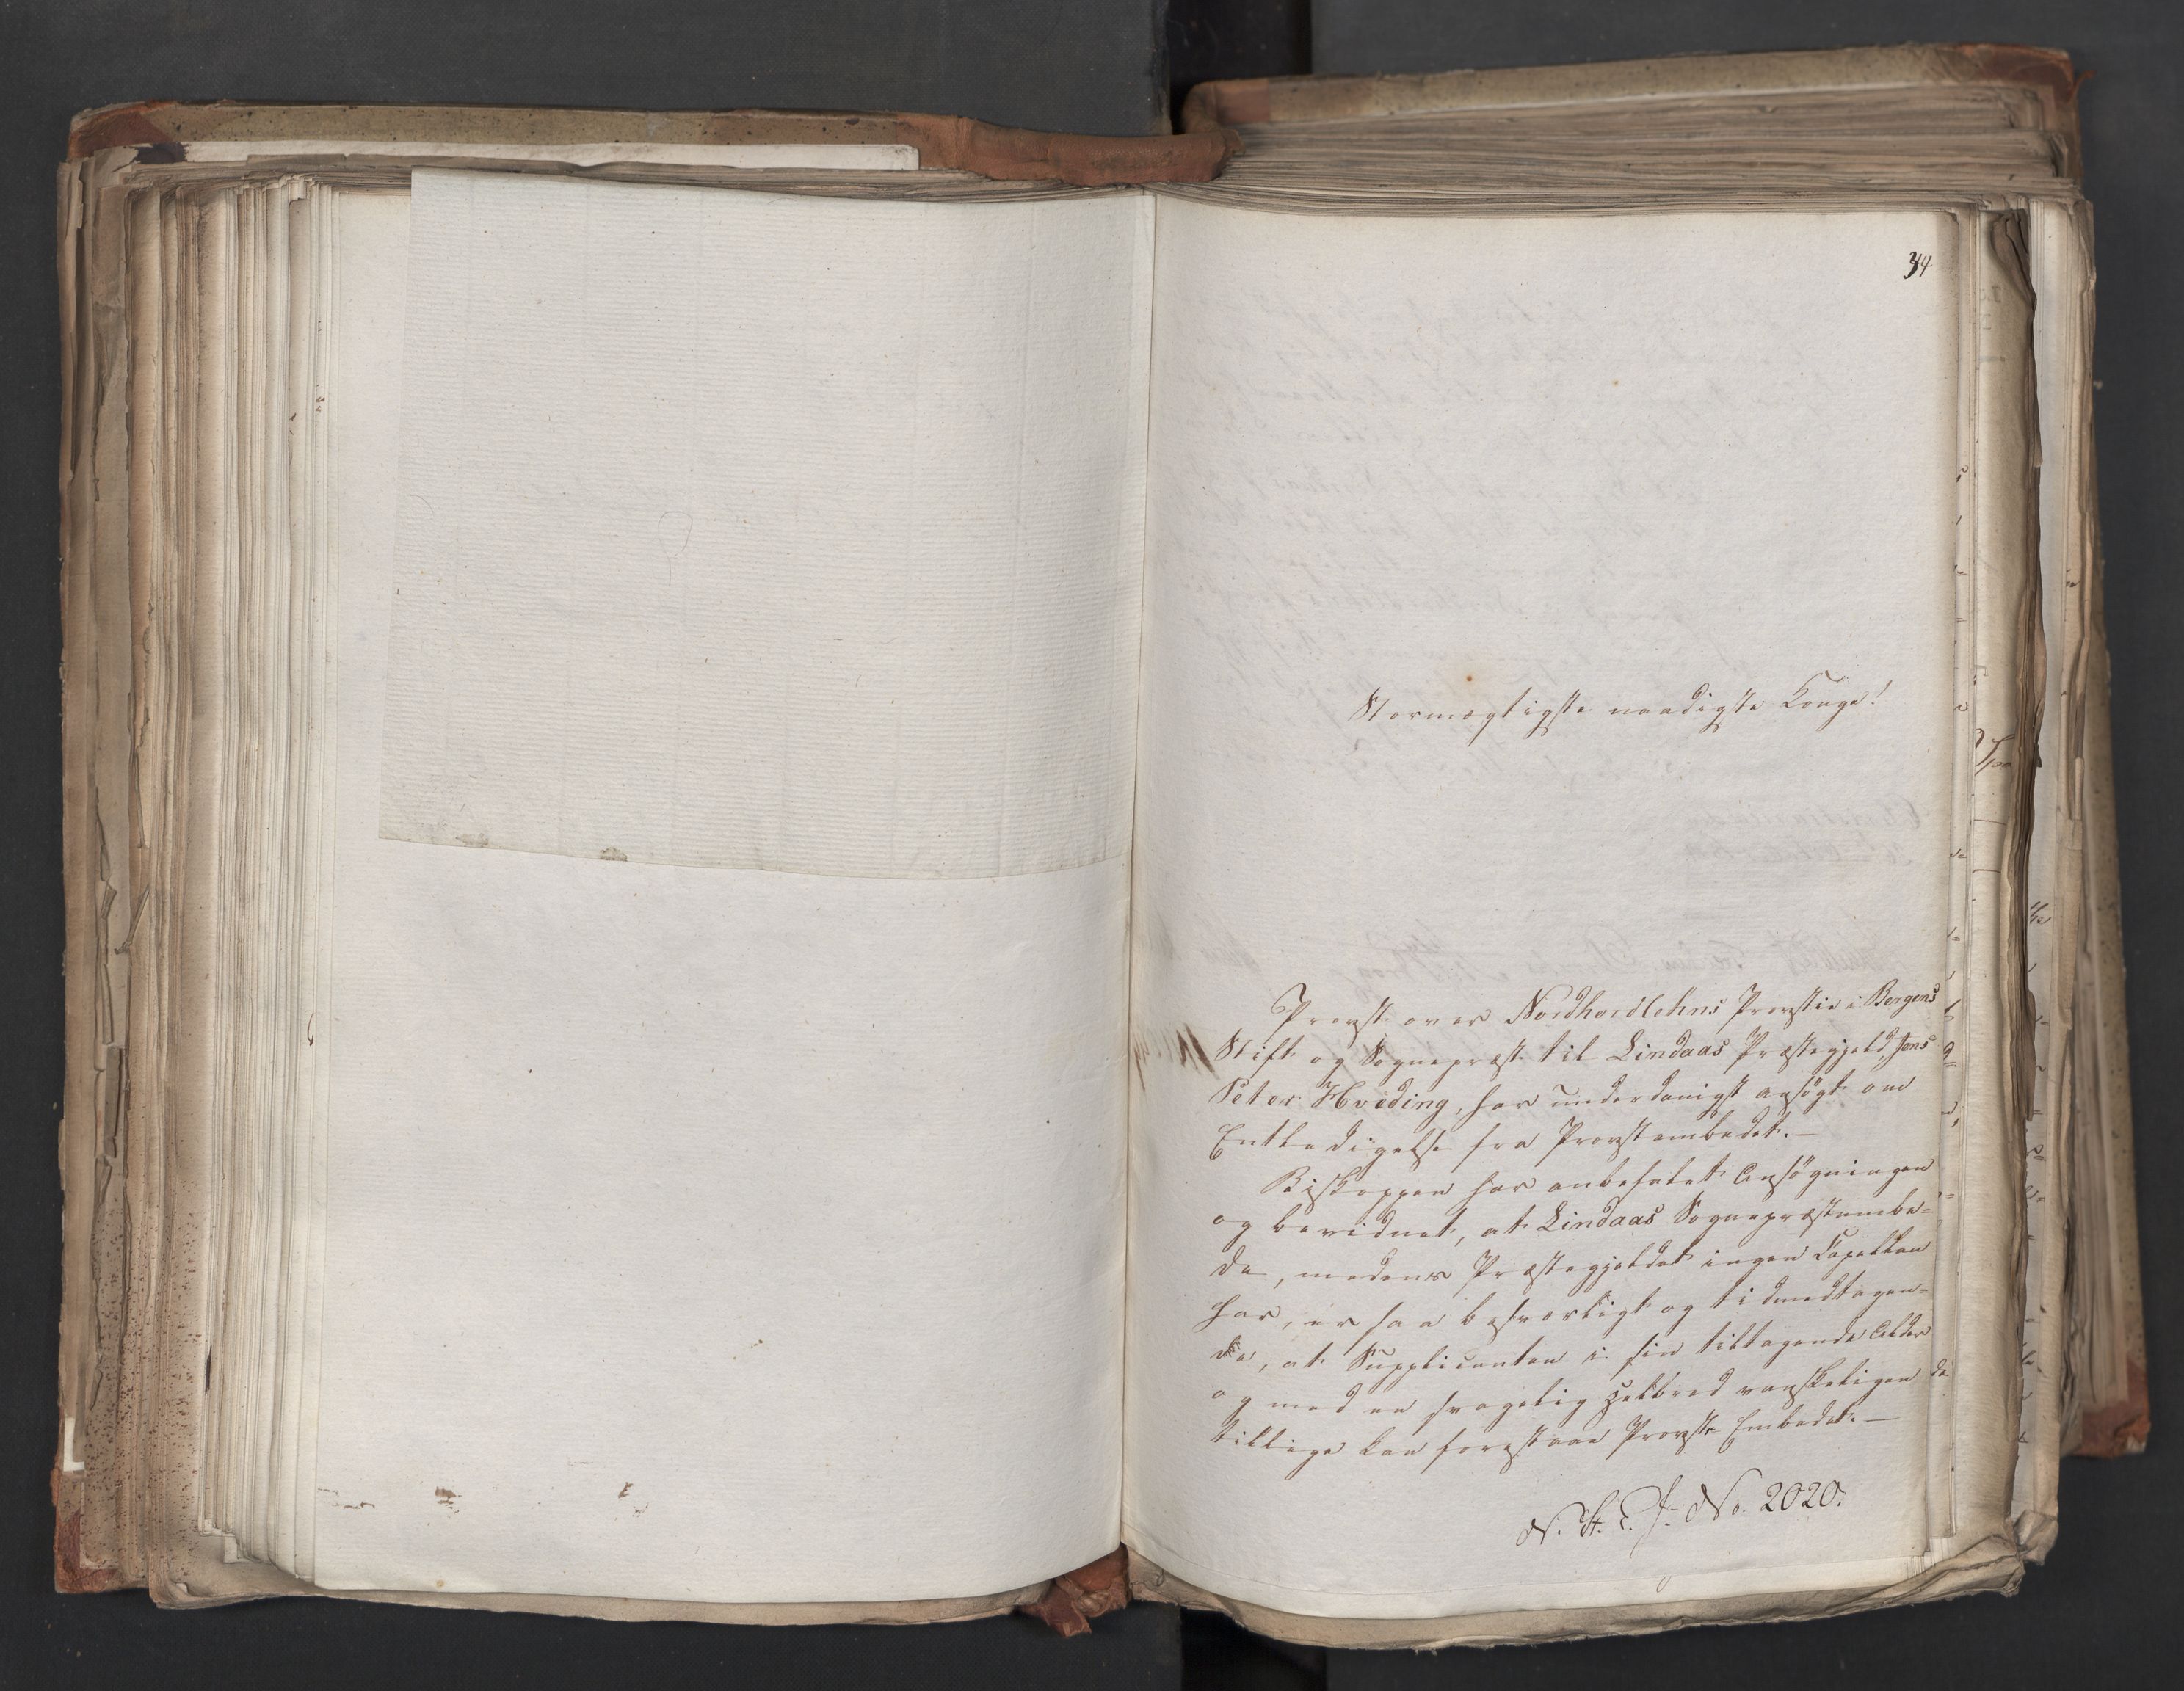 34
Stormægtigste naadigste Konge!
Provst over Nordhordlehns Provstie i Bergens
Stift og Sognepræst til Lindaas Præstegjeld, Jens
Peter Hveding, har underdanigst ansøgt om
Entledigelse fra Provstembedet. —
Biskoppen har anbefalet Ansøgningen
og bevidnet, at Lindaas Sognepræstembe=
de, medens Præstegjeldet ingen Capellan
har, er saa besværligt og tidmedtagen=
de, at Supplicanten i sin tiltagende Alder
og med en svagelig Helbred vanskeligen
tillige kan forestaae Provste Embedet. —
No. 2020.